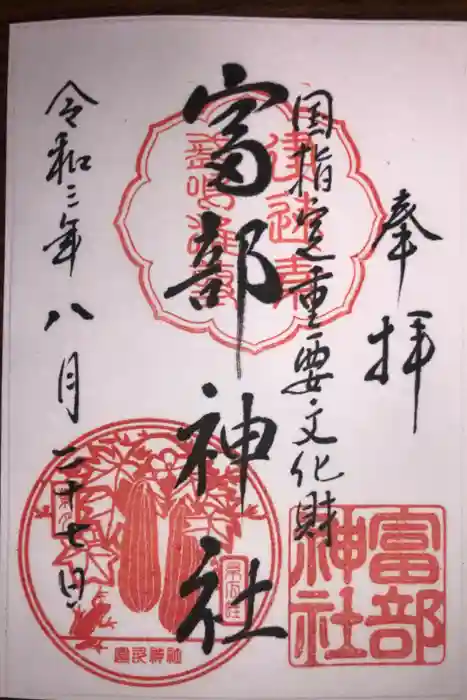 奉拝
国指定重要文化財
富部神社
令和三年八月二十七日
富部神社
富部神社